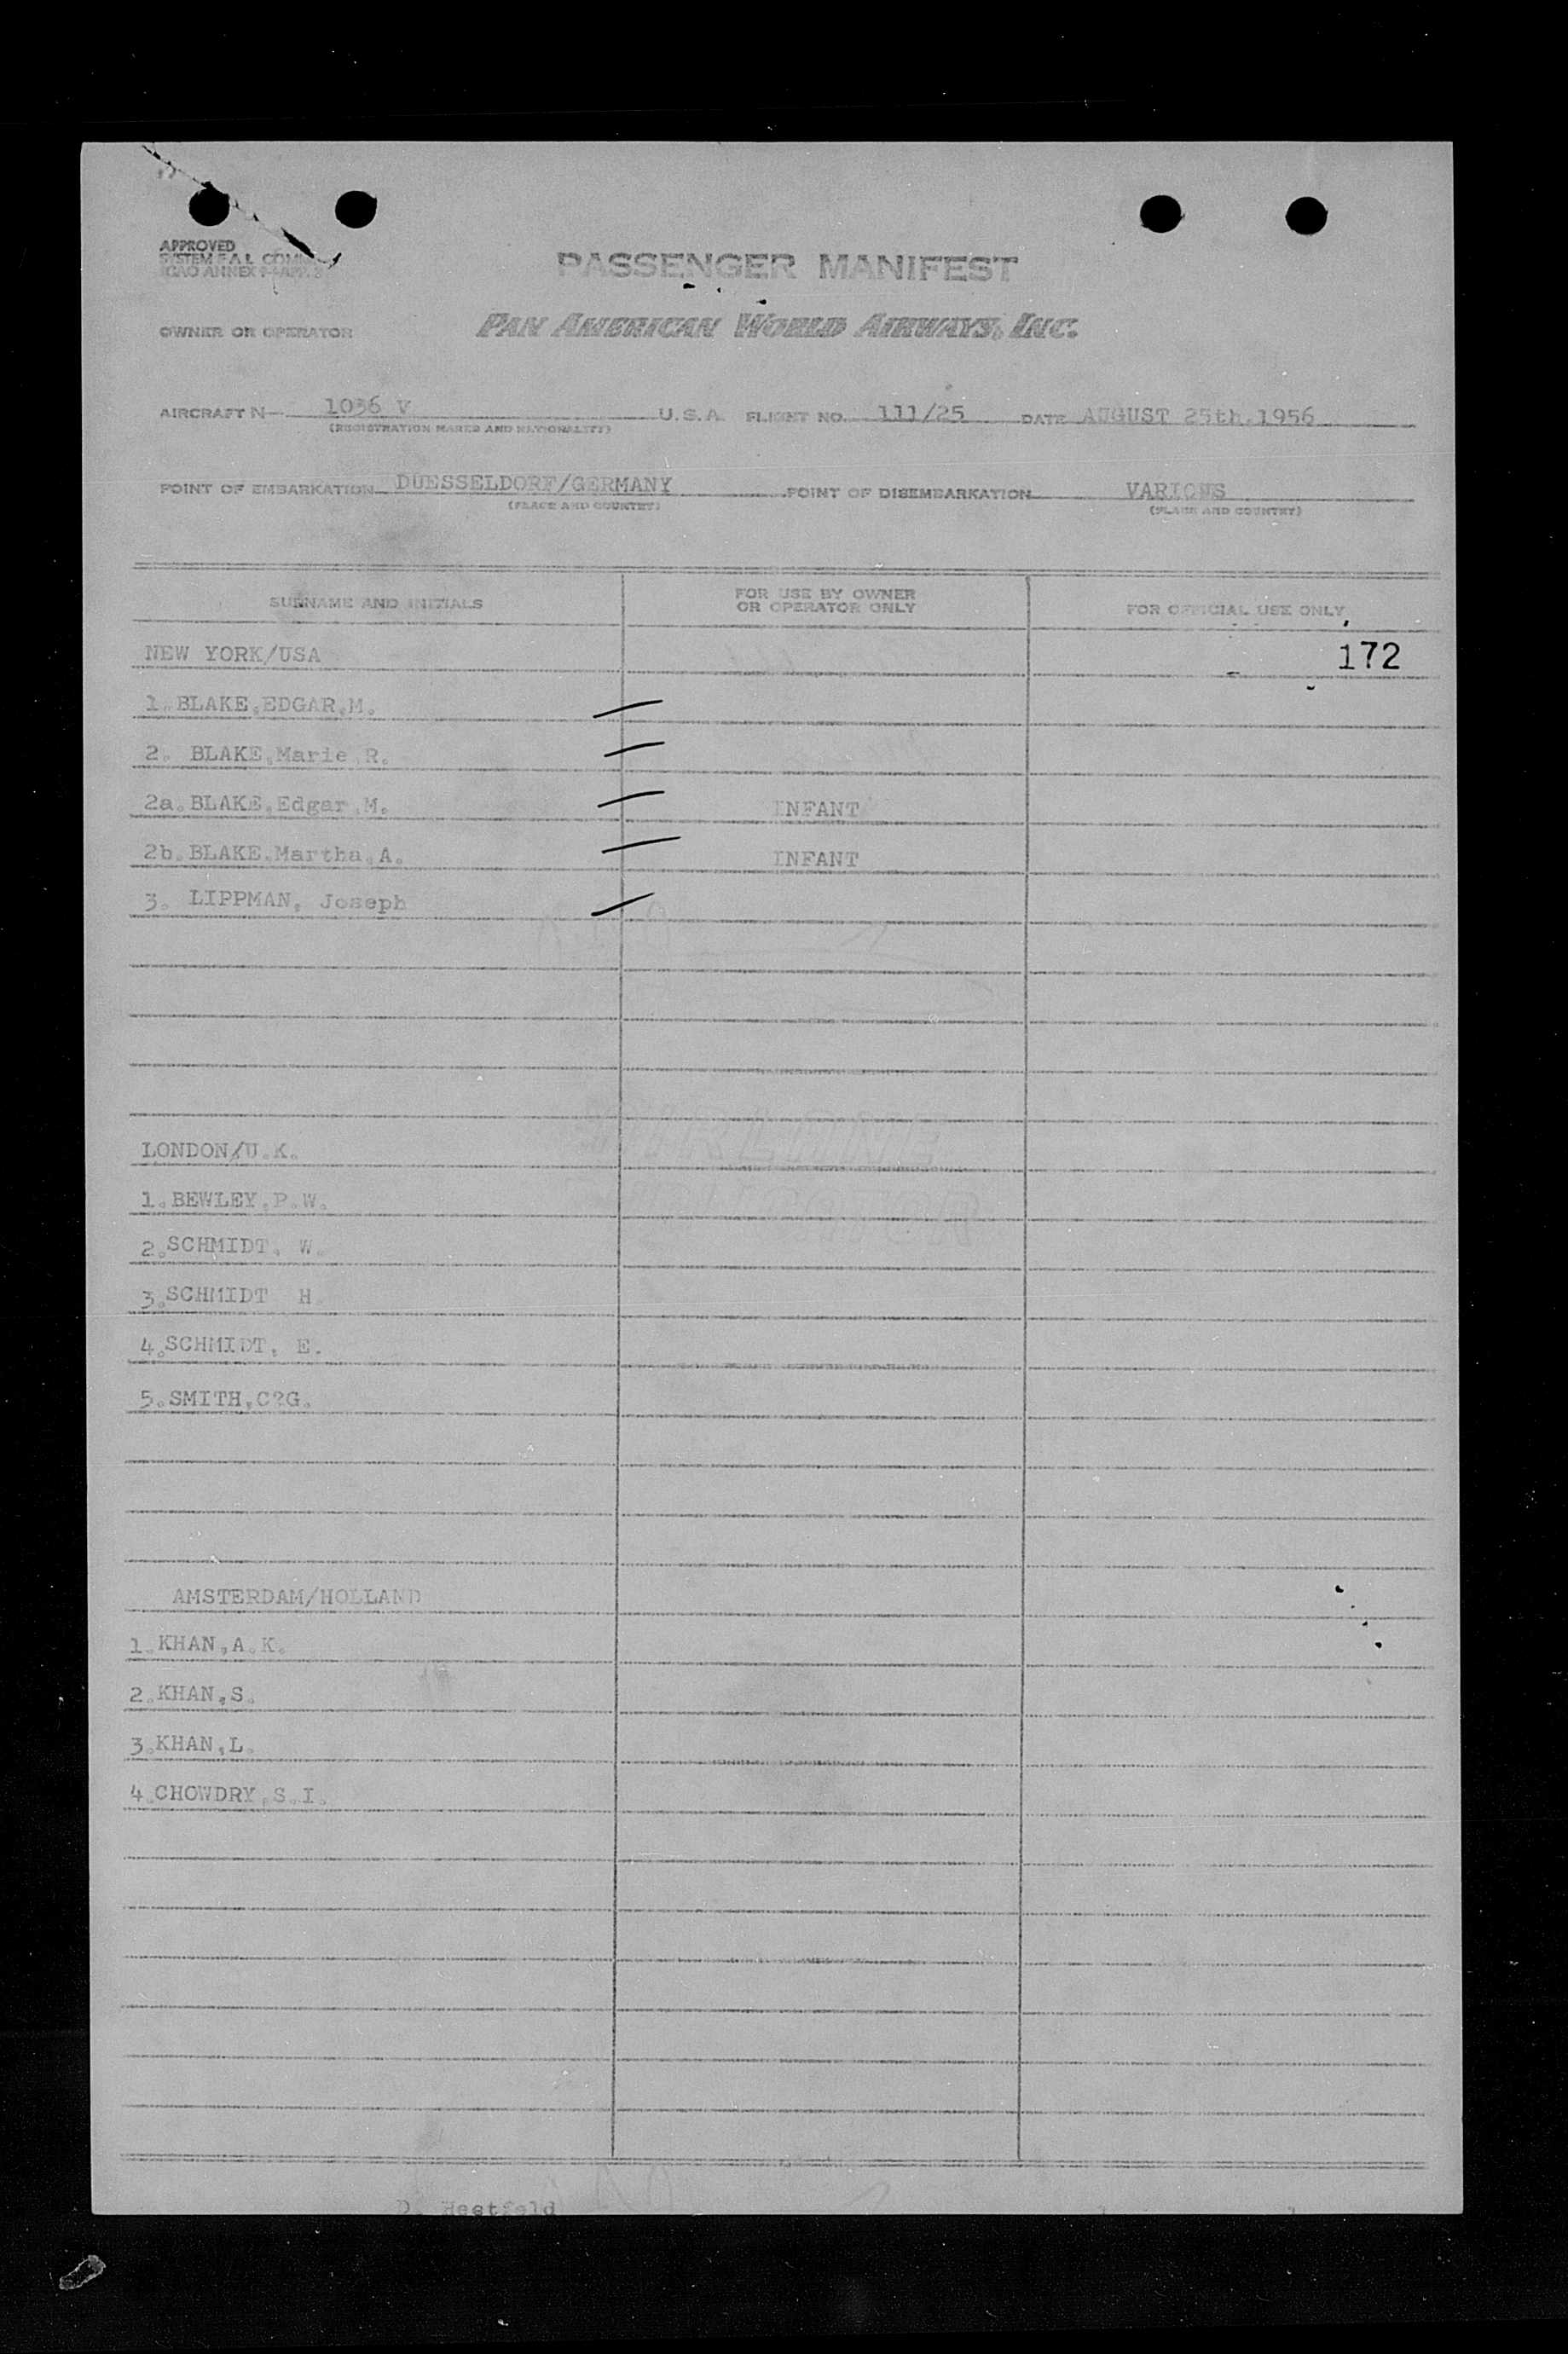 APPROVED
SYSTEM F.A.L. COM
ICAO ANNEX 9-APP. 3
PASSENGER MANIFEST
OWNER OR OPERATOR PAN AMERICAN WORLD AIRWAYS, INC.
AIRCRAFT N- 1036 V U.S.A. FLIGHT NO. 111/25 DATE AUGUST 25th.1956
(REGISTRATION MARKS AND NATIONALITY)
POINT OF EMBARKATION DUESSELDORF/GERMANY POINT OF DISEMBARKATION VARIOUS
(PLACE AND COUNTRY) (PLACE AND COUNTRY)
SURNAME AND INITIALS FOR USE BY OWNER OR OPERATOR ONLY FOR OFFICIAL USE ONLY
NEW YORK/USA 172
1.BLAKE,EDGAR,M.
2. BLAKE,Marie R.
2a.BLAKE,Edgar M. INFANT
2b.BLAKE,Martha,A. INFANT
3. LIPPMAN, Joseph
LONDON/U.K.
1.BEWLEY,P.W.
2.SCHMIDT, W.
3.SCHMIDT H.
4.SCHMIDT, E.
5.SMITH,C?G.
AMSTERDAM/HOLLAND
1.KHAN,A.K.
2.KHAN,S.
3.KHAN,L.
4.CHOWDRY,S.I.
D. Hestfeld